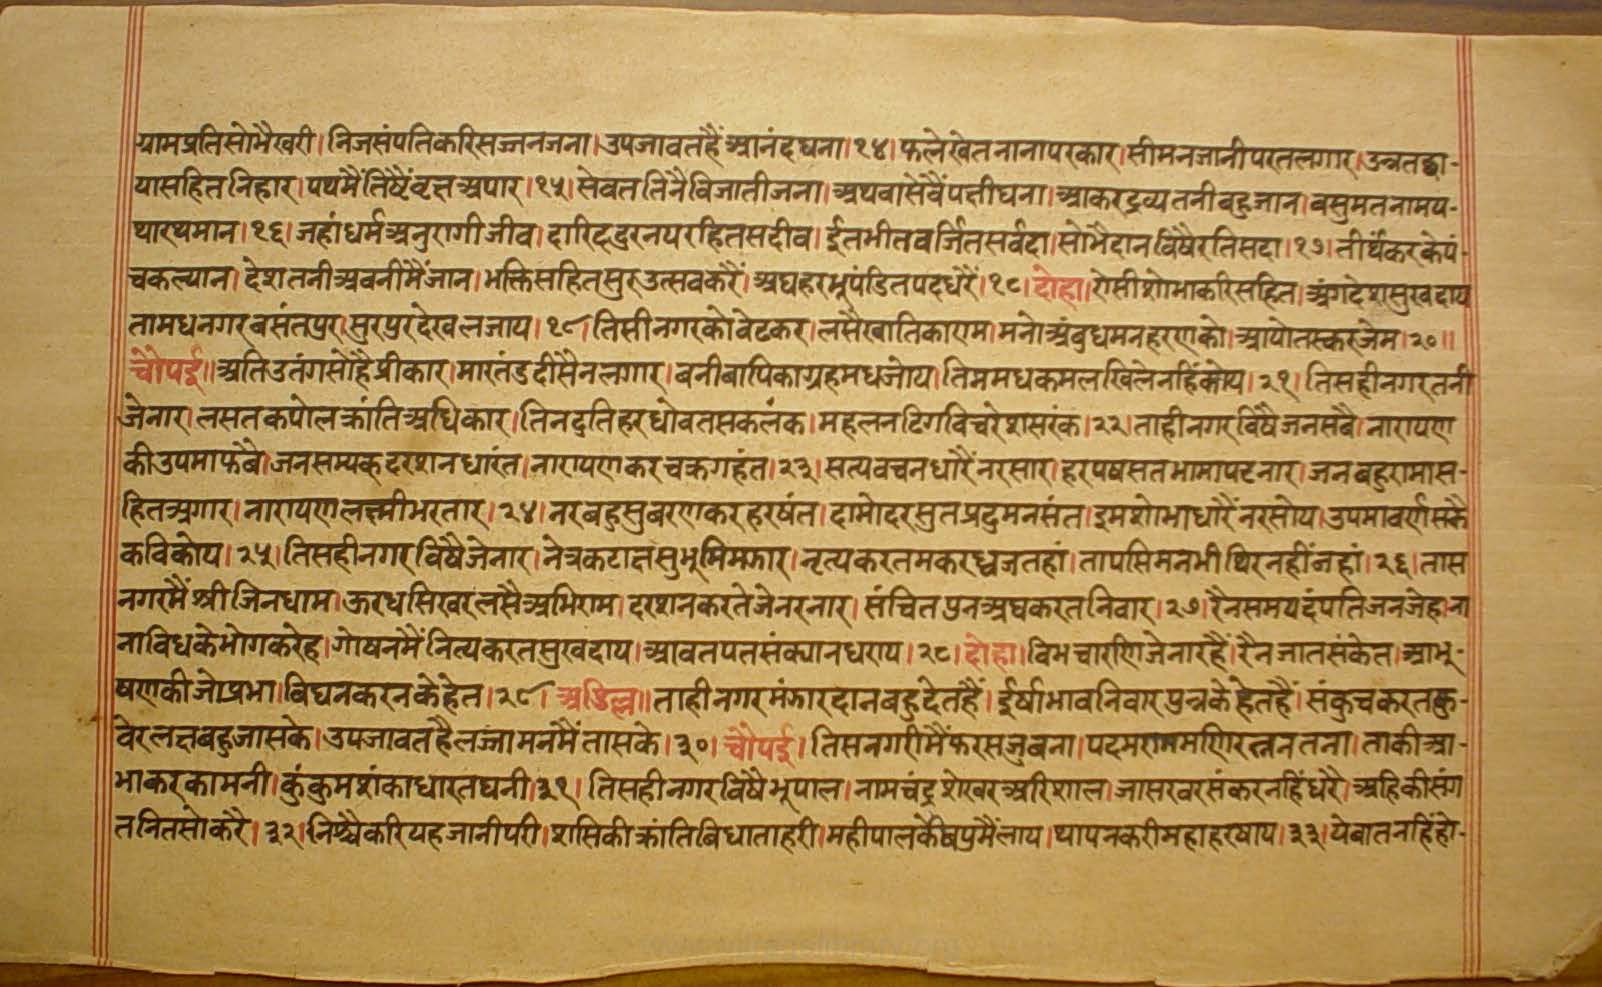 ग्रामप्रतिसोभैखरी।निजसंपतिकरिसज्जनजना।उपजावतहैंआनंदघना।१४।फलेखेतनानापरकार।सीमनजानीपरतलगार।उन्नतछा-
यासहितनिहार।पथमैंतिष्टैंवृक्षअपार।१५।सेवततिनैविजातीजना।अथवासेवैंपक्षीघना।आकरद्रव्यतनीबहुजान।वसुमतनामय-
थारथमान।१६।जहांधर्मअनुरागीजीव।दारिद्रदुरनयरहितसदीव।ईतभीतवर्जितसर्वदा।सोभैदानविषैरतिसदा।१७।तीर्थंकरकेपं-
चकल्यान।देशतनीअवनीमैंजान।भक्तिसहितसुरउत्सवकरैं।अघहरभूपंडितपदधरैं।१८।दोहा।ऐसीशोभाकरिसहित।अंगदेशसुखदाय
तामधनगरबसंतपुर।सुरपुरदेखलजाय।१९।तिसीनगरकोवेढकर।लसैखातिकाएम।मनोअंबुधमनहरणको।आपोतस्करजेम।२०॥
चौपई॥अतिउतंगसोहैप्रीकार।मारतंडदीसैनलगार।बनीबापिकाग्रहमधजोय।तिममधकमलखिलेनहिंकोय।२१।तिसहीनगरतनी
जेनार।लसतकपोलक्रांतिअधिकार।तिनदुतिहरधोवतसकलंक।महलनढिगविचरेशसरंक।२२।ताहीनगरविषैजनसबै।नारायण
कीउपमाफबै।जनसम्यकदरशनधारंत।नारायणकरचक्रगहंत।२३।सत्यवचनधारैंनरसार।हरपषसतभामापटनार।जनबहुरामास-
हितअगार।नारायणलक्ष्मीभरतार।२४।नरबहुसुबरणकरहरषंत।दामोदरसुतप्रदुमनसंत।इमशोभाधारैंनरसोय।उपमावर्णसकै
कविकोय।२५।तिसहीनगरविषैजेनार।नेत्रकटाक्षसुभूमिमझार।नृत्यकरतमकरध्वजतहां।तापसिमनभीथिरनहींजहां।२६।तास
नगरमैंश्रीजिनधाम।ऊरधसिखरलसैअभिराम।दरशनकरतेजेनरनार।संचितपुनअघकरतनिवार।२७।रैनसमयदंपतिजनजेह।ना
नाविधकेभोगकरेह।गोषनमैंनित्यकरतसुखदाय।आवतपतसंक्यानधराय।२८।दोहा।विभचारणिजेनारहैं।रैनजातसंकेत।आभू-
षणकीजोप्रभा।विघनकरनकेहेत।२९।अडिल्ल॥ताहीनगरमंझारदानबहुदेतहैं।ईर्षाभावनिवारपुन्नकेहेतहैं।संकुचकरतकु-
वेरलक्षबहुजासके।उपजावतहैलज्जामनमैंतासके।३०।चौपई।तिसनगरीमैंफरसजुबना।पदमरागमणिरत्ननतना।ताकीआ-
भाकरकामनी।कुंकुमशंकाधारतघनी।३१।तिसहीनगरविषैभूपाल।नामचंद्रशेखरअरिशाल।जासरवरसंकरनहिंधरै।अहिकीसंग
तनितसोकरै।३२।निश्चैकरियहजानीपरी।शसिकीक्रांतिबिधाताहरी।महीपालकेवपुमैंलाय।थापनकरीमहाहरषाय।३३।येबातनहिंहो-